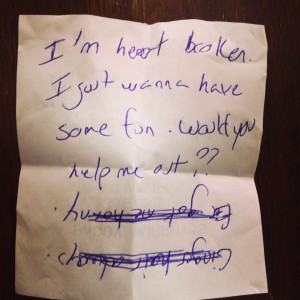 I'm heart broken.
I just wanna have
some fun. Would you
help me out??